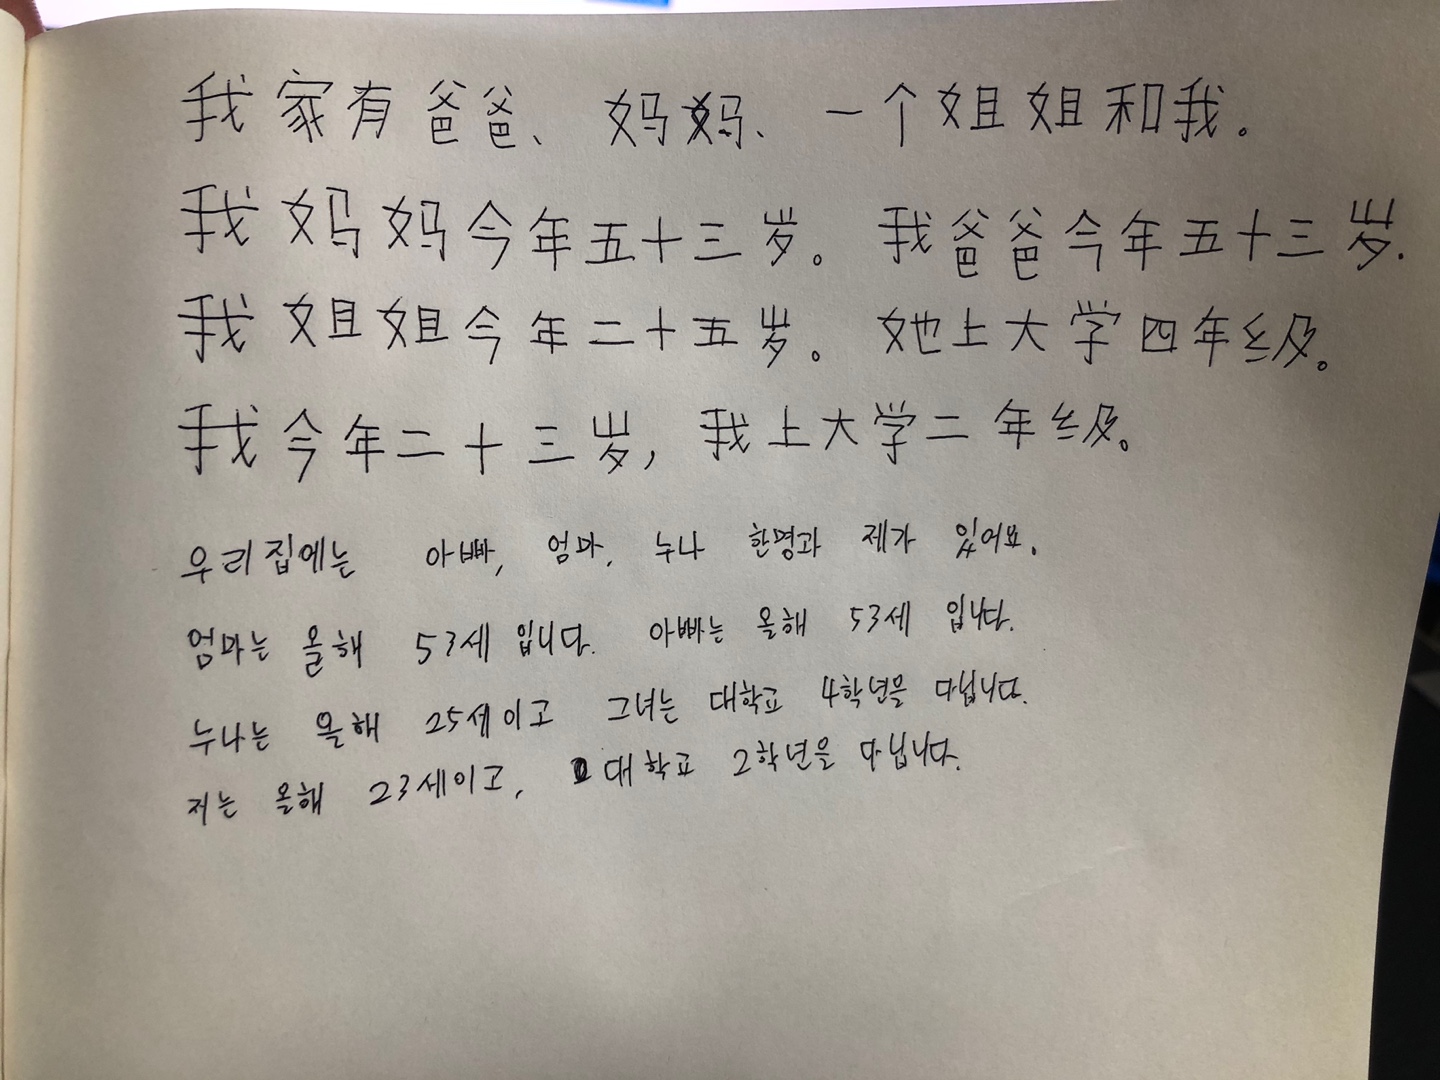 我家有爸爸、妈妈、一个姐姐和我。
我妈妈今年五十三岁。 我爸爸今年五十三岁.
我姐姐今年二十五岁。 她上大学四年级。
我今年二十三岁, 我上大学二年级。
우리집에는 아빠, 엄마, 누나 한명과 제가 있어요.
엄마는 올해 53세 입니다. 아빠는 올해 53세 입니다.
누나는 올해 25세이고 그녀는 대학교 4학년을 다닙니다.
저는 올해 23세이고, 대학교 2학년을 다닙니다.